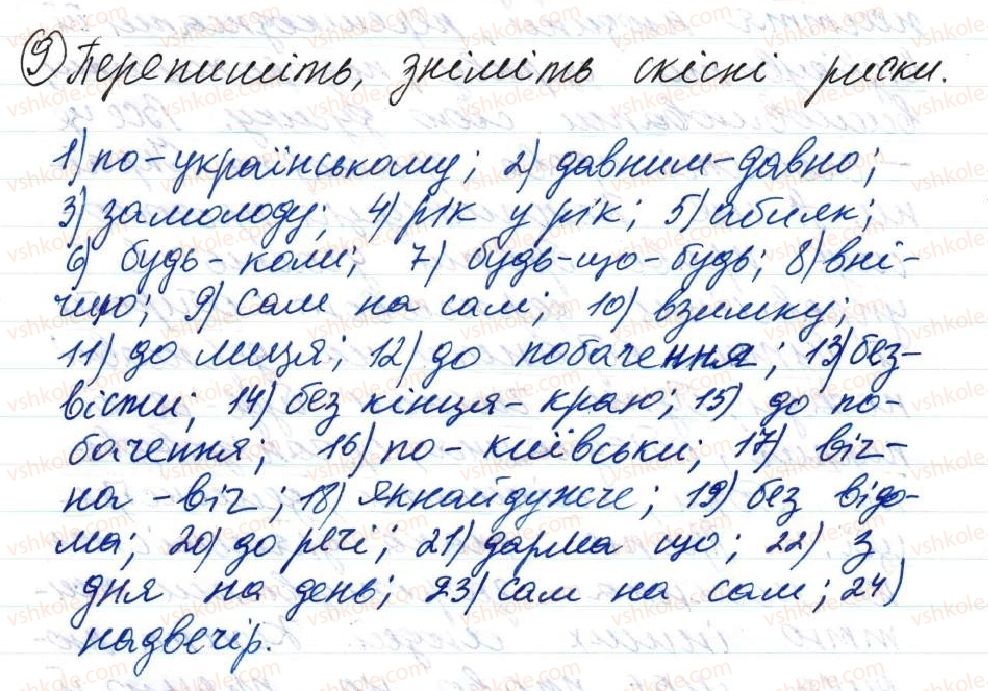 9) Перепишіть, зніміть скісні риски.
1) по-українському; 2) давним-давно;
3) замолоду; 4) рік у рік; 5) абияк;
6) будь-коли; 7) будь-що-будь; 8) вні-
чию; 9) сам на сам; 10) взимку;
11) до лиця; 12) до побачення; 13) без-
вісти; 14) без кінця-краю; 15) до по-
бачення; 16) по-київськи; 17) віч-
на-віч; 18) якнайдужче; 19) без відо-
ма; 20) до речі; 21) дарма що; 22) з
дня на день; 23) сам на сам; 24)
надвечір.